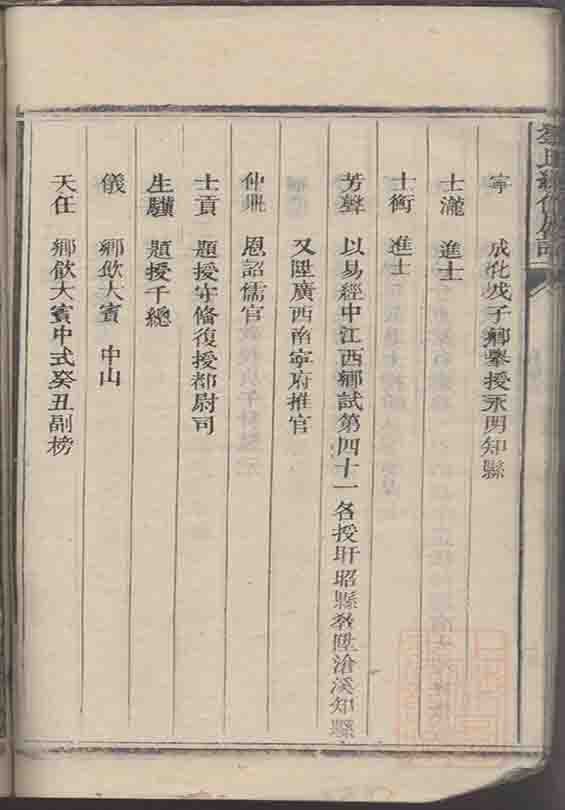 寧 成化戊子鄉舉授永明知縣
士瀧 進士
士衡 進士
芳聲 以易經中江西鄉試第四十一名授盱眙縣教陞滄溪知縣
又陞廣西南寧府推官
仲鼎 恩詔儒官
士貢 題授守俻復授都尉司
生驥 題授千總
儀 鄉飲大賓 中山
天任 鄉飲大賓中式癸丑副榜